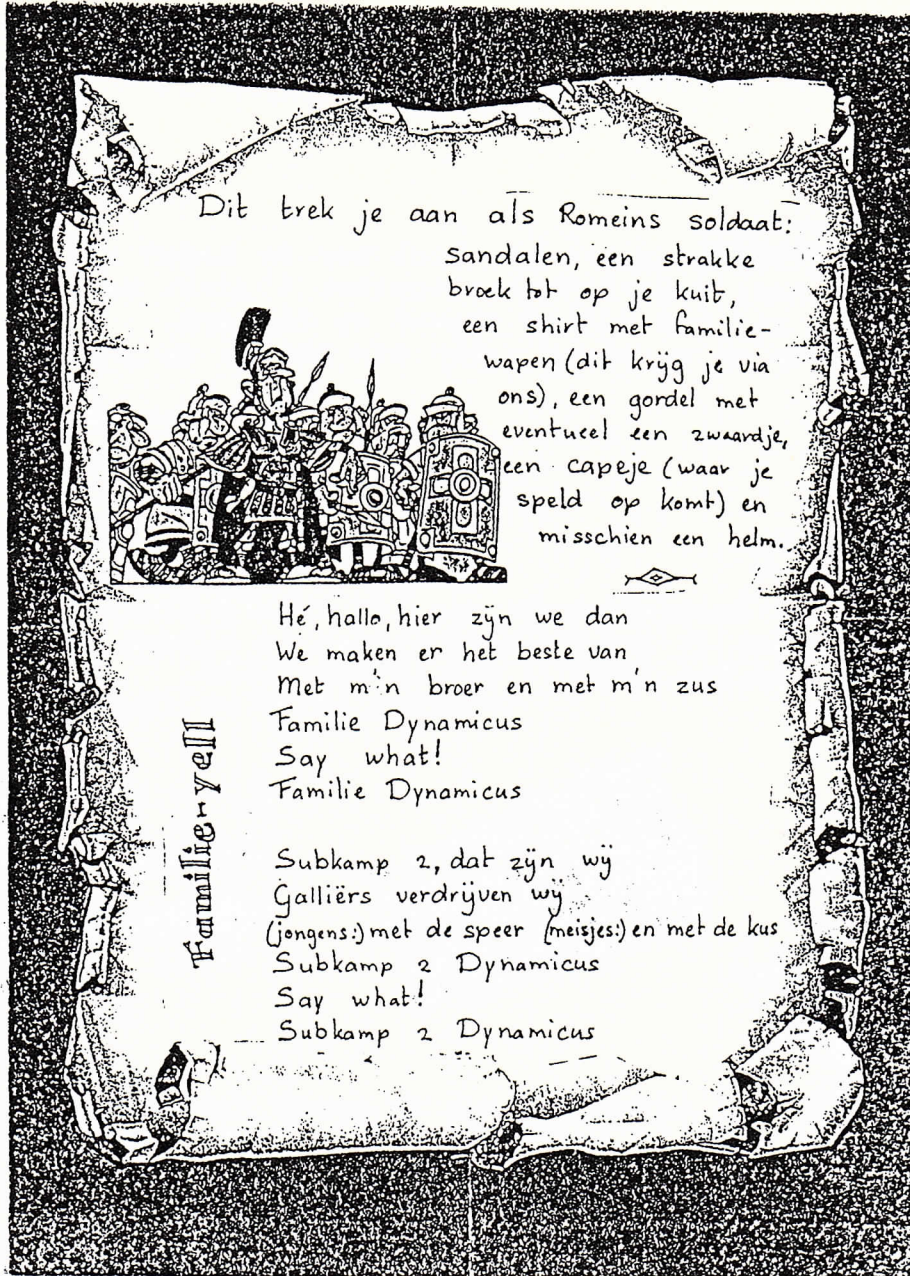 Dit trek je aan als Romeins soldaat:
sandalen, een strakke
broek tot op je kuit,
een shirt met familie-
wapen (dit krijg je via
ons), een gordel met
eventueel een zwaardje,
een capeje (waar je
speld op komt) en
misschien een helm.
Familie-yell
Hé, hallo, hier zijn we dan
We maken er het beste van
Met m'n broer en met m'n zus
Familie Dynamicus
Say what!
Familie Dynamicus
Subkamp 2, dat zijn wij
Galliërs verdrijven wij
(jongens:) met de speer (meisjes:) en met de kus
Subkamp 2 Dynamicus
Say what!
Subkamp 2 Dynamicus